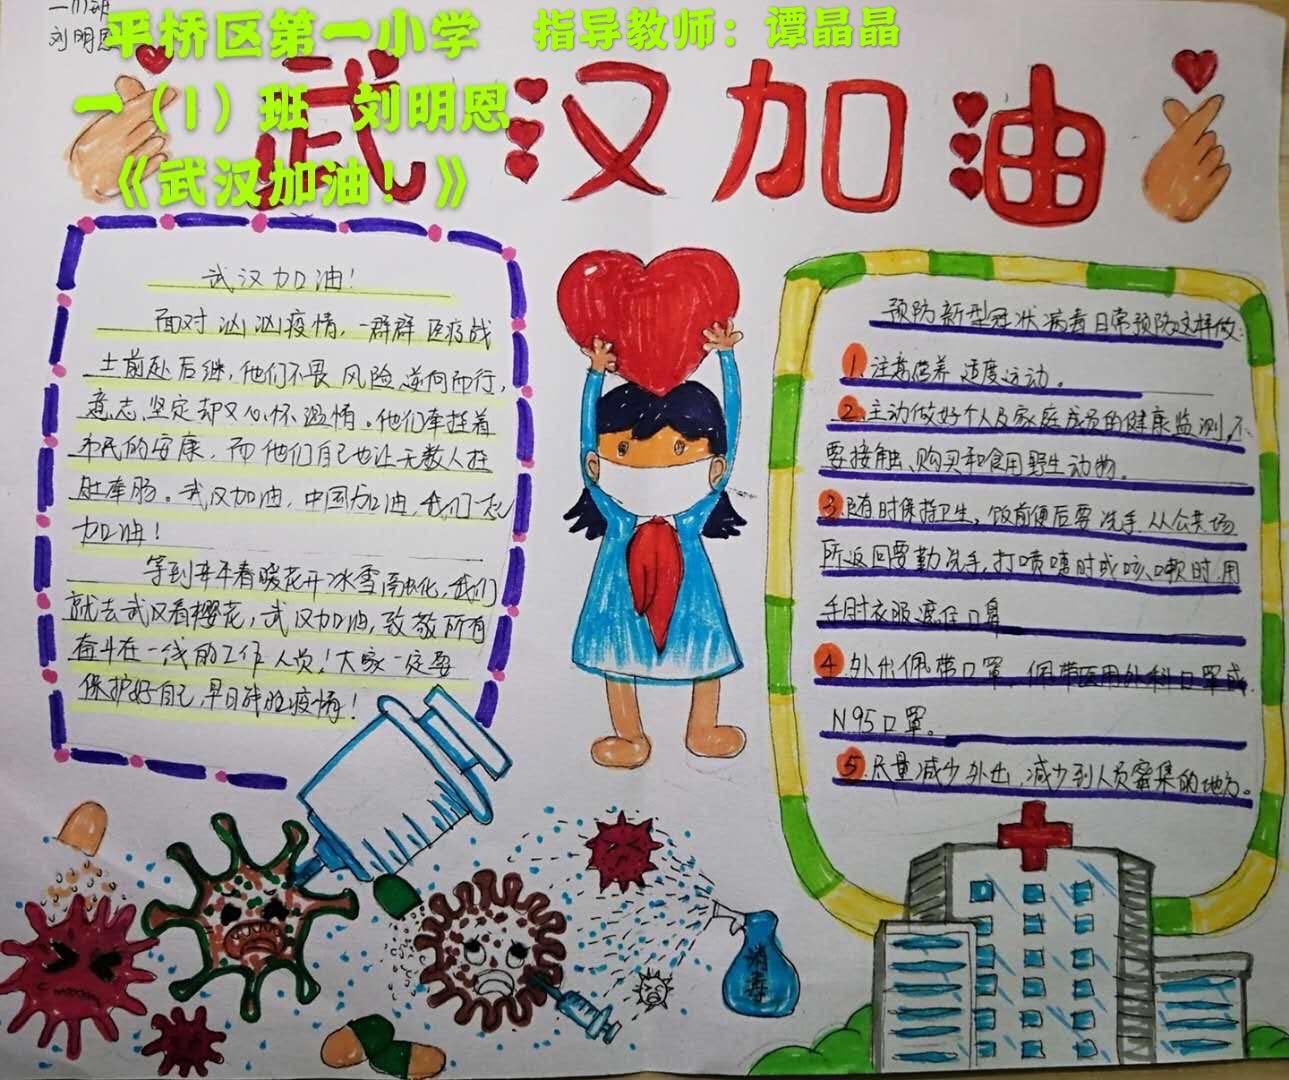 一(1)班
刘明恩
平桥区第一小学 指导教师：谭晶晶
一（1）班 刘明恩
《武汉加油！》
武汉加油
武汉加油！
面对汹汹疫情，一群群医疗战
士前赴后继，他们不畏风险逆向而行，
意志坚定却又心怀温情。他们牵挂着
市民的安康，而他们自己也让无数人挂
肚牵肠。武汉加油，中国加油，我们一起
加油！
等到来年春暖花开冰雪融化，我们
就去武汉看樱花，武汉加油，致敬所有
奋斗在一线的工作人员！大家一定要
保护好自己，早日战胜疫情！
预防新型冠状病毒日常预防这样做：
1.注意营养 适度运动。
2.主动做好个人及家庭成员的健康监测，不
要接触、购买和食用野生动物。
3.随时保持卫生，饭前便后要洗手，从公共场
所返回要勤洗手，打喷嚏时或咳嗽时，用
手肘衣服遮住口鼻
4.外出佩带口罩，佩带医用外科口罩或
N95口罩。
5.尽量减少外出，减少到人员密集的地方。
消毒